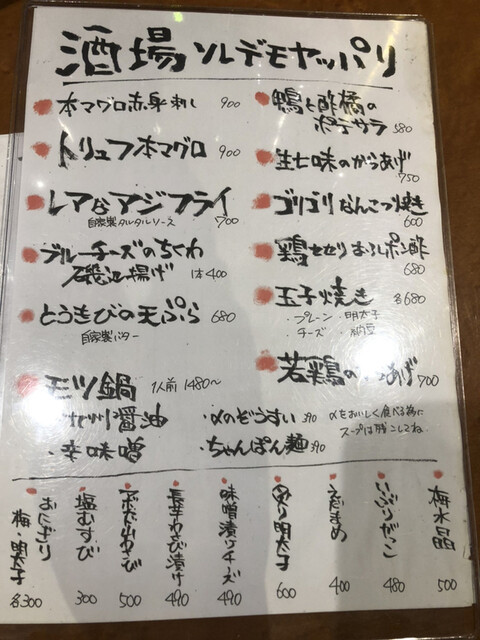 酒場ソレデモヤッパリ
本マグロ赤身刺し 900
トリュフ本マグロ 900
レアなアジフライ
自家製タルタルソース 700
ブルーチーズのちくわ
磯辺揚げ 1本400
とうきびの天ぷら 680
自家製バター
鴨と酢橘の
ポテサラ 580
生七味のからあげ
750
ゴリゴリなんこつ焼き
600
鶏せせりおろしポン酢
680
玉子焼き 各680
・プレーン ・明太子
・チーズ ・納豆
若鶏のからあげ 700
モツ鍋 1人前 1480〜
醤油
・辛味噌
・〆のぞうすい 390
・ちゃんぽん麺 390
〆をおいしく食べる為に
スープは残しててね
梅水晶 500
いいぶりだっこ 480
えだまめ 400
炙り明太子 600
味噌漬けチーズ 490
長芋わさび漬け 490
アボカドわさび 500
塩むすび 300
おにぎり
梅・明太子 各300